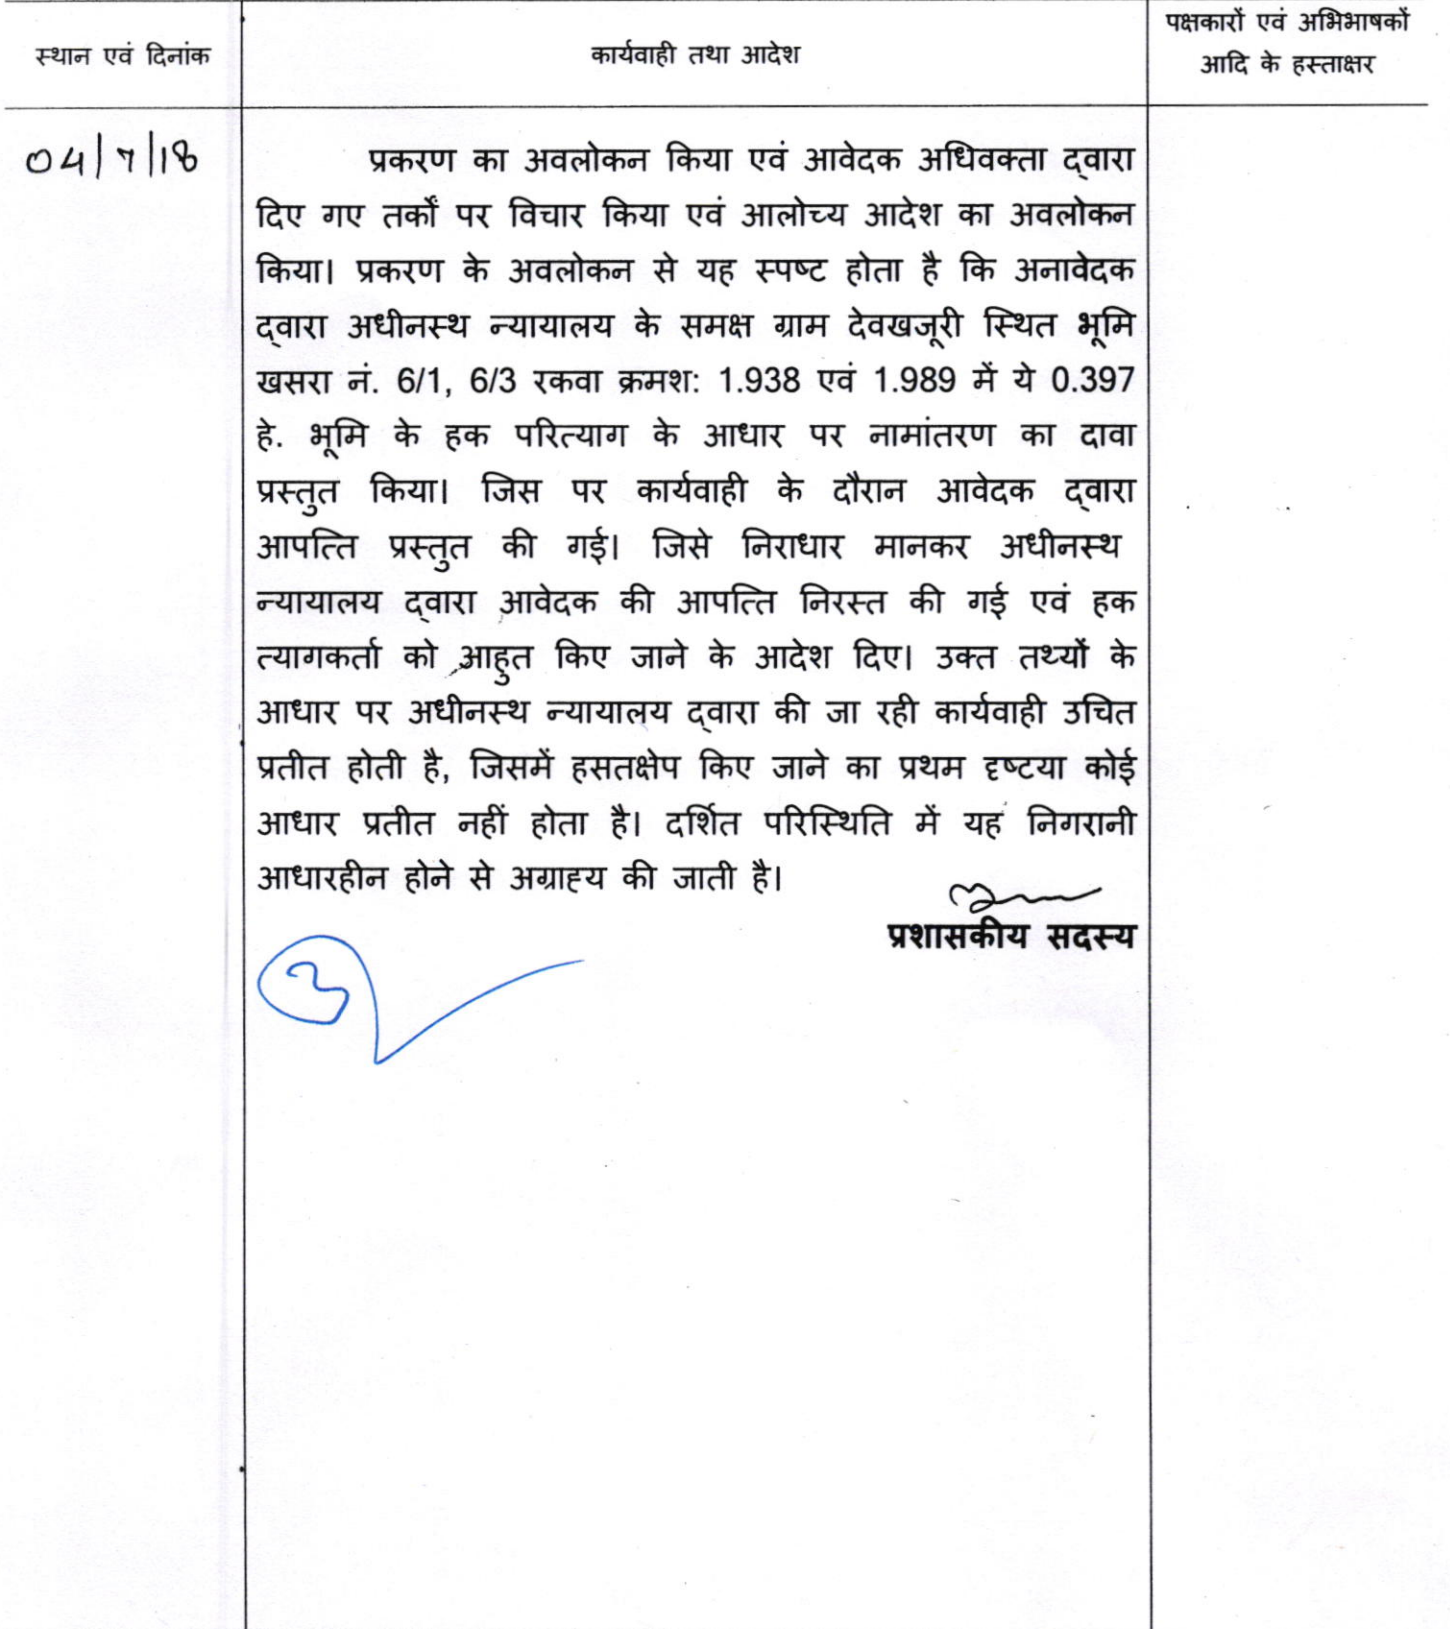 स्थान एवं दिनांक
कार्यवाही तथा आदेश
पक्षकारों एवं अभिभाषकों
आदि के हस्ताक्षर
04/7/18
प्रकरण का अवलोकन किया एवं आवेदक अधिवक्ता द्वारा
दिए गए तर्कों पर विचार किया एवं आलोच्य आदेश का अवलोकन
किया। प्रकरण के अवलोकन से यह स्पष्ट होता है कि अनावेदक
द्वारा अधीनस्थ न्यायालय के समक्ष ग्राम देवखजूरी स्थित भूमि
खसरा नं. 6/1, 6/3 रकवा क्रमश: 1.938 एवं 1.989 में ये 0.397
हे. भूमि के हक परित्याग के आधार पर नामांतरण का दावा
प्रस्तुत किया। जिस पर कार्यवाही के दौरान आवेदक द्वारा
आपत्ति प्रस्तुत की गई। जिसे निराधार मानकर अधीनस्थ
न्यायालय द्वारा आवेदक की आपत्ति निरस्त की गई एवं हक
त्यागकर्ता को आहुत किए जाने के आदेश दिए। उक्त तथ्यों के
आधार पर अधीनस्थ न्यायालय द्वारा की जा रही कार्यवाही उचित
प्रतीत होती है, जिसमें हसतक्षेप किए जाने का प्रथम दृष्टया कोई
आधार प्रतीत नहीं होता है। दर्शित परिस्थिति में यह निगरानी
आधारहीन होने से अग्राह्य की जाती है।
प्रशासकीय सदस्य